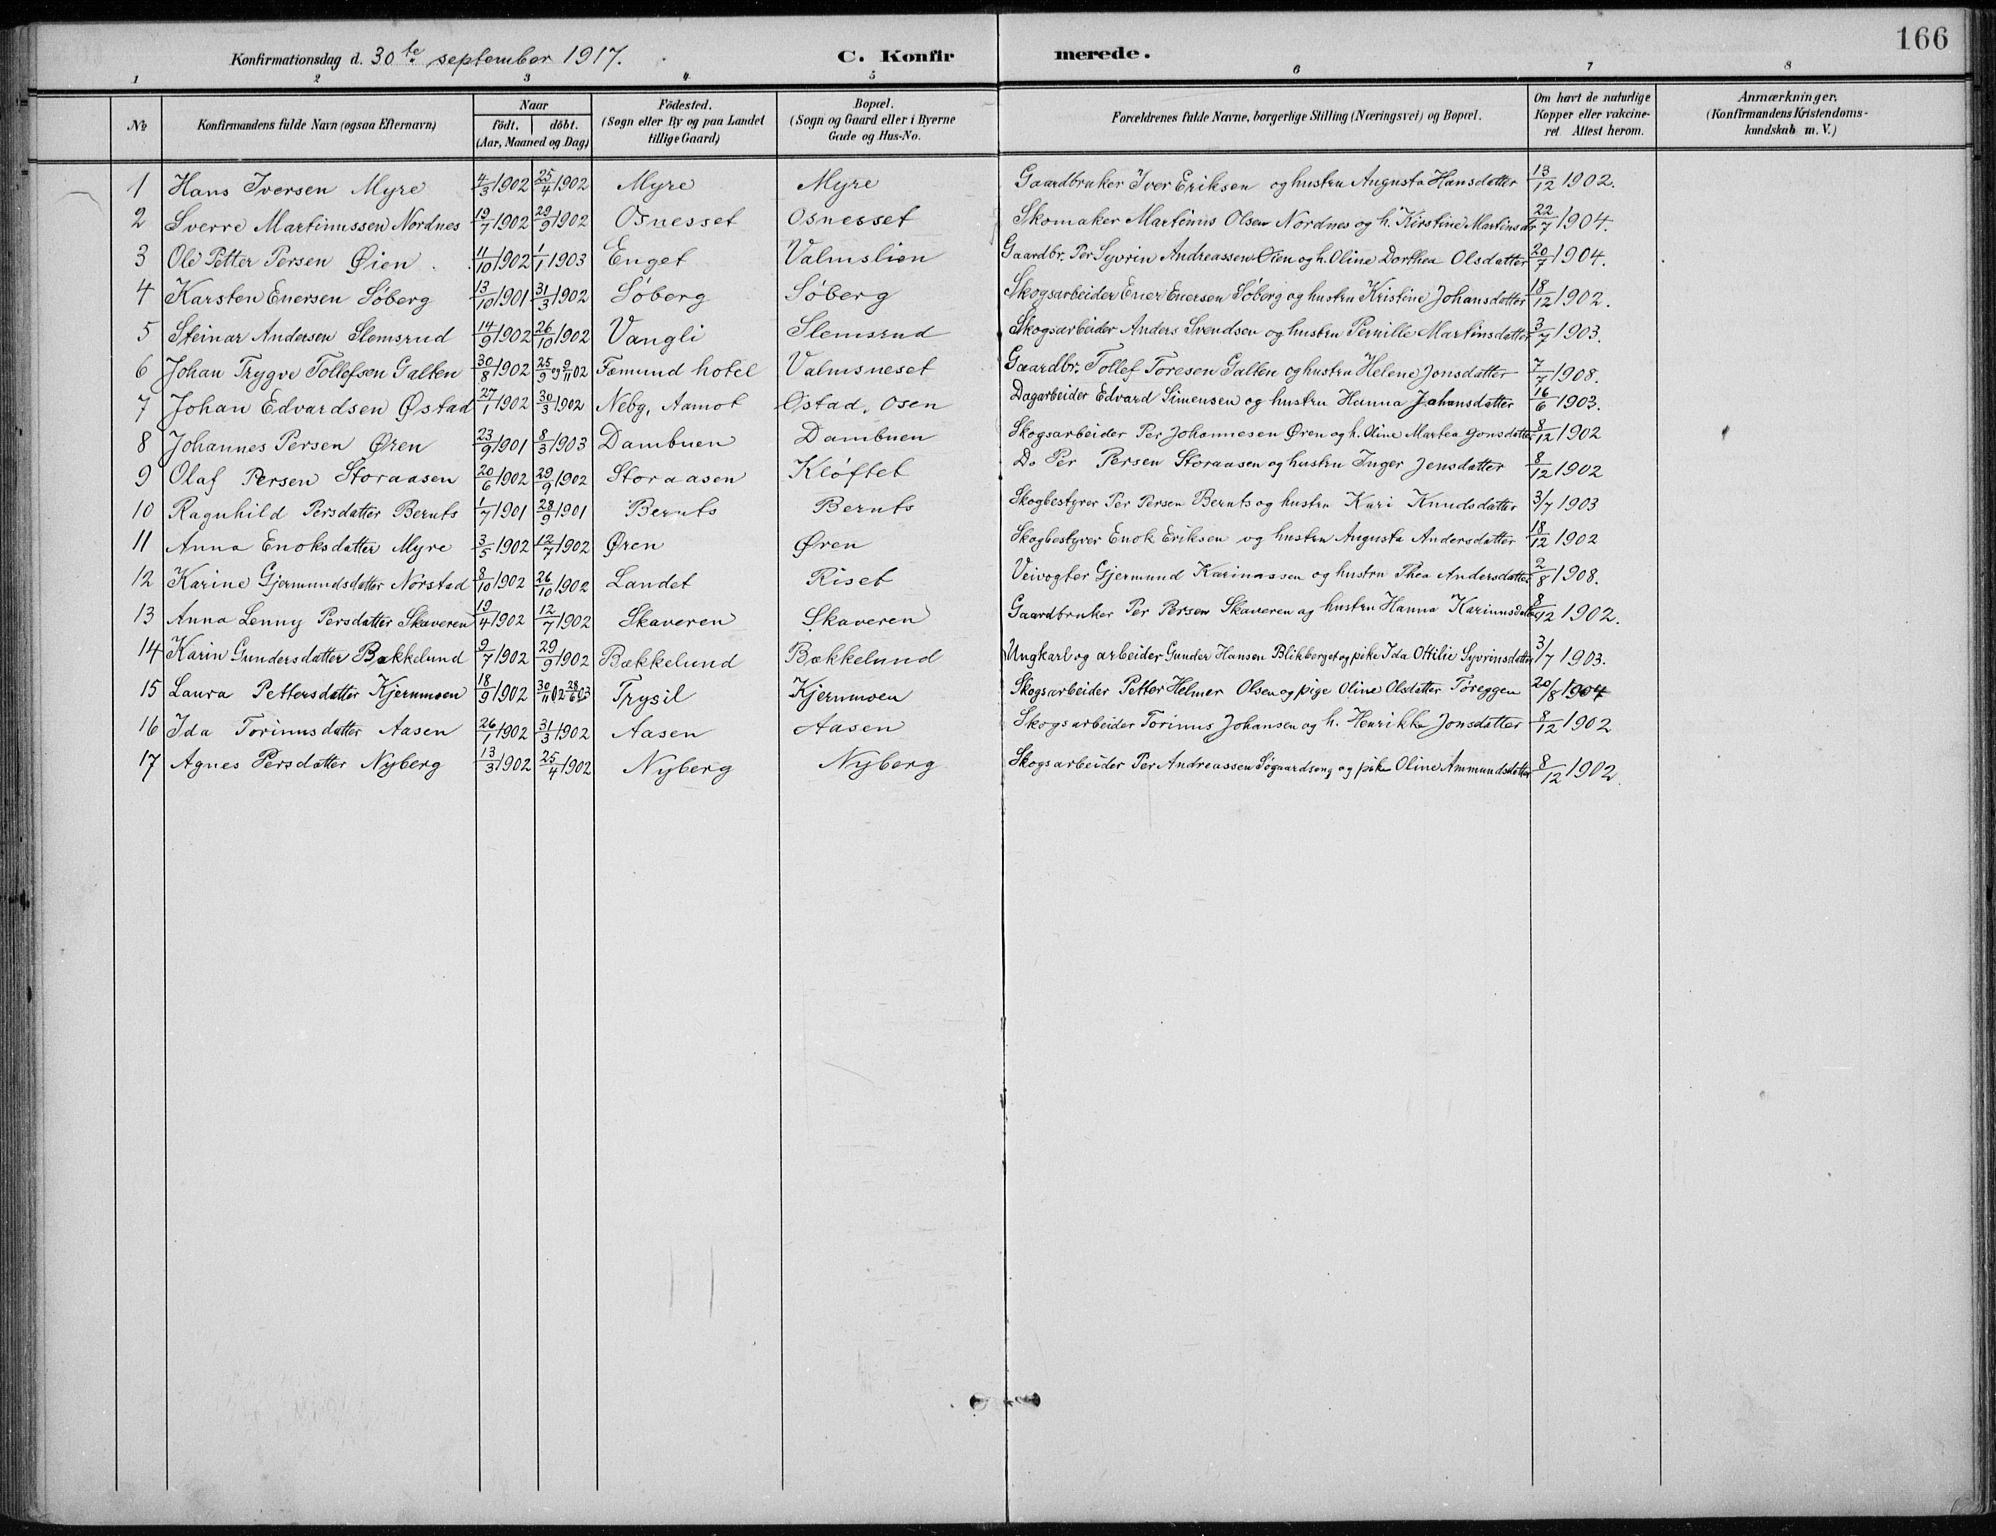 166
Konfirmationsdag d. 30te september 1917. C. Konfirmerede.
1 2 3 4 5 6 7 8
No Konfirmandens fulde Navn (ogsaa Efternavn) Naar födt. döbt. (Aar, Maaned og Dag) Födested. (Sogn eller By og paa Landet tillige Gaard) Bopæl. (Sogn og Gaard eller i Byerne Gade og Hus-No. Forældrenes fulde Navne, borgerlige Stilling (Næringsvei) og Bopæl. Om havt de naturlige Kopper eller vakcineret Attest herom. Anmærkninger. (Konfirmandens Kristendomskundskab m. V.)
1 Hans Iversen Myre 4/3 1902 25/4 1902 Myre Myre Gaardbruker Iver Eriksen og hustru Augusta Hansdatter 13/12 1902.
2 Sverre Martinussen Nordnes 19/7 1902 29/9 1902 Osnesset Osnesset Skomaker Martinus Olsen Nordnes og h. Kirstine Martinsdtr 22/7 1904.
3 Ole Petter Persen Øien 11/10 1902 1/1 1903 Enget Valmslien Gaardbr. Per Syvrin Andreassen Øien og h. Oline Dorthea Olsdatter 20/7 1904.
4 Karsten Enersen Söberg 13/10 1901 31/3 1902 Söberg Söberg Skogsarbeider Ener Enersen Söberg og hustru Kristine Johansdatter 18/12 1902.
5 Steinar Andersen Slemsrud 14/9 1902 26/10 1902 Vangli Slemsrud Skogsarbeider Anders Svendsen og hustru Pernille Martinsdatter 3/7 1903.
6 Johan Trygve Tollefsen Galten 30/8 1902 25/9 og 9/11 02 Fæmund hotel Valmsneset Gaardbr. Tollef Toresen Galten og hustru Helene Jonsdatter 7/7 1908.
7 Johan Edvardsen Østad 27/1 1902 30/3 1902 Nebg, Aamot Østad, Osen Dagarbeider Edvard Simensen og hustru Hanna Johansdatter 16/6 1903.
8 Johannes Persen Øren 23/9 1901 8/3 1903 Dambuen Dambuen Skogsarbeider Per Johannesen Øren og h. Oline Martea Jonsdatter 8/12 1902
9 Olaf Persen Storaasen 20/6 1902 29/9 1902 Storaasen Klöftet Do Per Persen Storaasen og hustru Inger Jensdatter 8/12 1902
10 Ragnhild Persdatter Bernts 1/7 1901 28/9 1901 Bernts Bernts Skogbestyrer Per Persen Bernts og hustru Kari Knudsdatter 3/7 1903
11 Anna Enoksdatter Myre 3/5 1902 12/7 1902 Øren Øren Skogbestyrer Enok Eriksen og hustru Augusta Andersdatter 18/12 1902
12 Karine Gjermundsdatter Nörstad 8/10 1902 26/10 1902 Landet Riset Veivogter Gjermund Karinussen og hustru Thea Andersdatter 2/8 1908.
13 Anna Lenny Persdatter Skaveren 19/4 1902 12/7 1902 Skaveren Skaveren Gaardbruker Per Persen Skaveren og hustru Hanna Karinusdatter 8/12 1902.
14 Karin Gundersdatter Bækkelund 9/7 1902 29/9 1902 Bækkelund Bækkelund Ungkarl og arbeider Gunder Hansen Blikberget og pike Ida Ottilie Syvrinsdatter 3/7 1903.
15 Laura Pettersdatter Kjernmoen 18/9 1902 30/11 02 28/6 03 Trysil Kjernmoen Skogsarbeider Petter Helmer Olsen og pige Oline Olsdatter Toreggen 20/8 1904
16 Ida Torinusdatter Aasen 26/1 1902 31/3 1902 Aasen Aasen Skogsarbeider Torinus Johansen og h. Henrikke Jonsdatter 8/12 1902
17 Agnes Persdatter Nyberg 13/3 1902 25/4 1902 Nyberg Nyberg Skogsarbeider Per Andreassen Sögaardseng og pike Oline Ammundsdatter 8/12 1902.